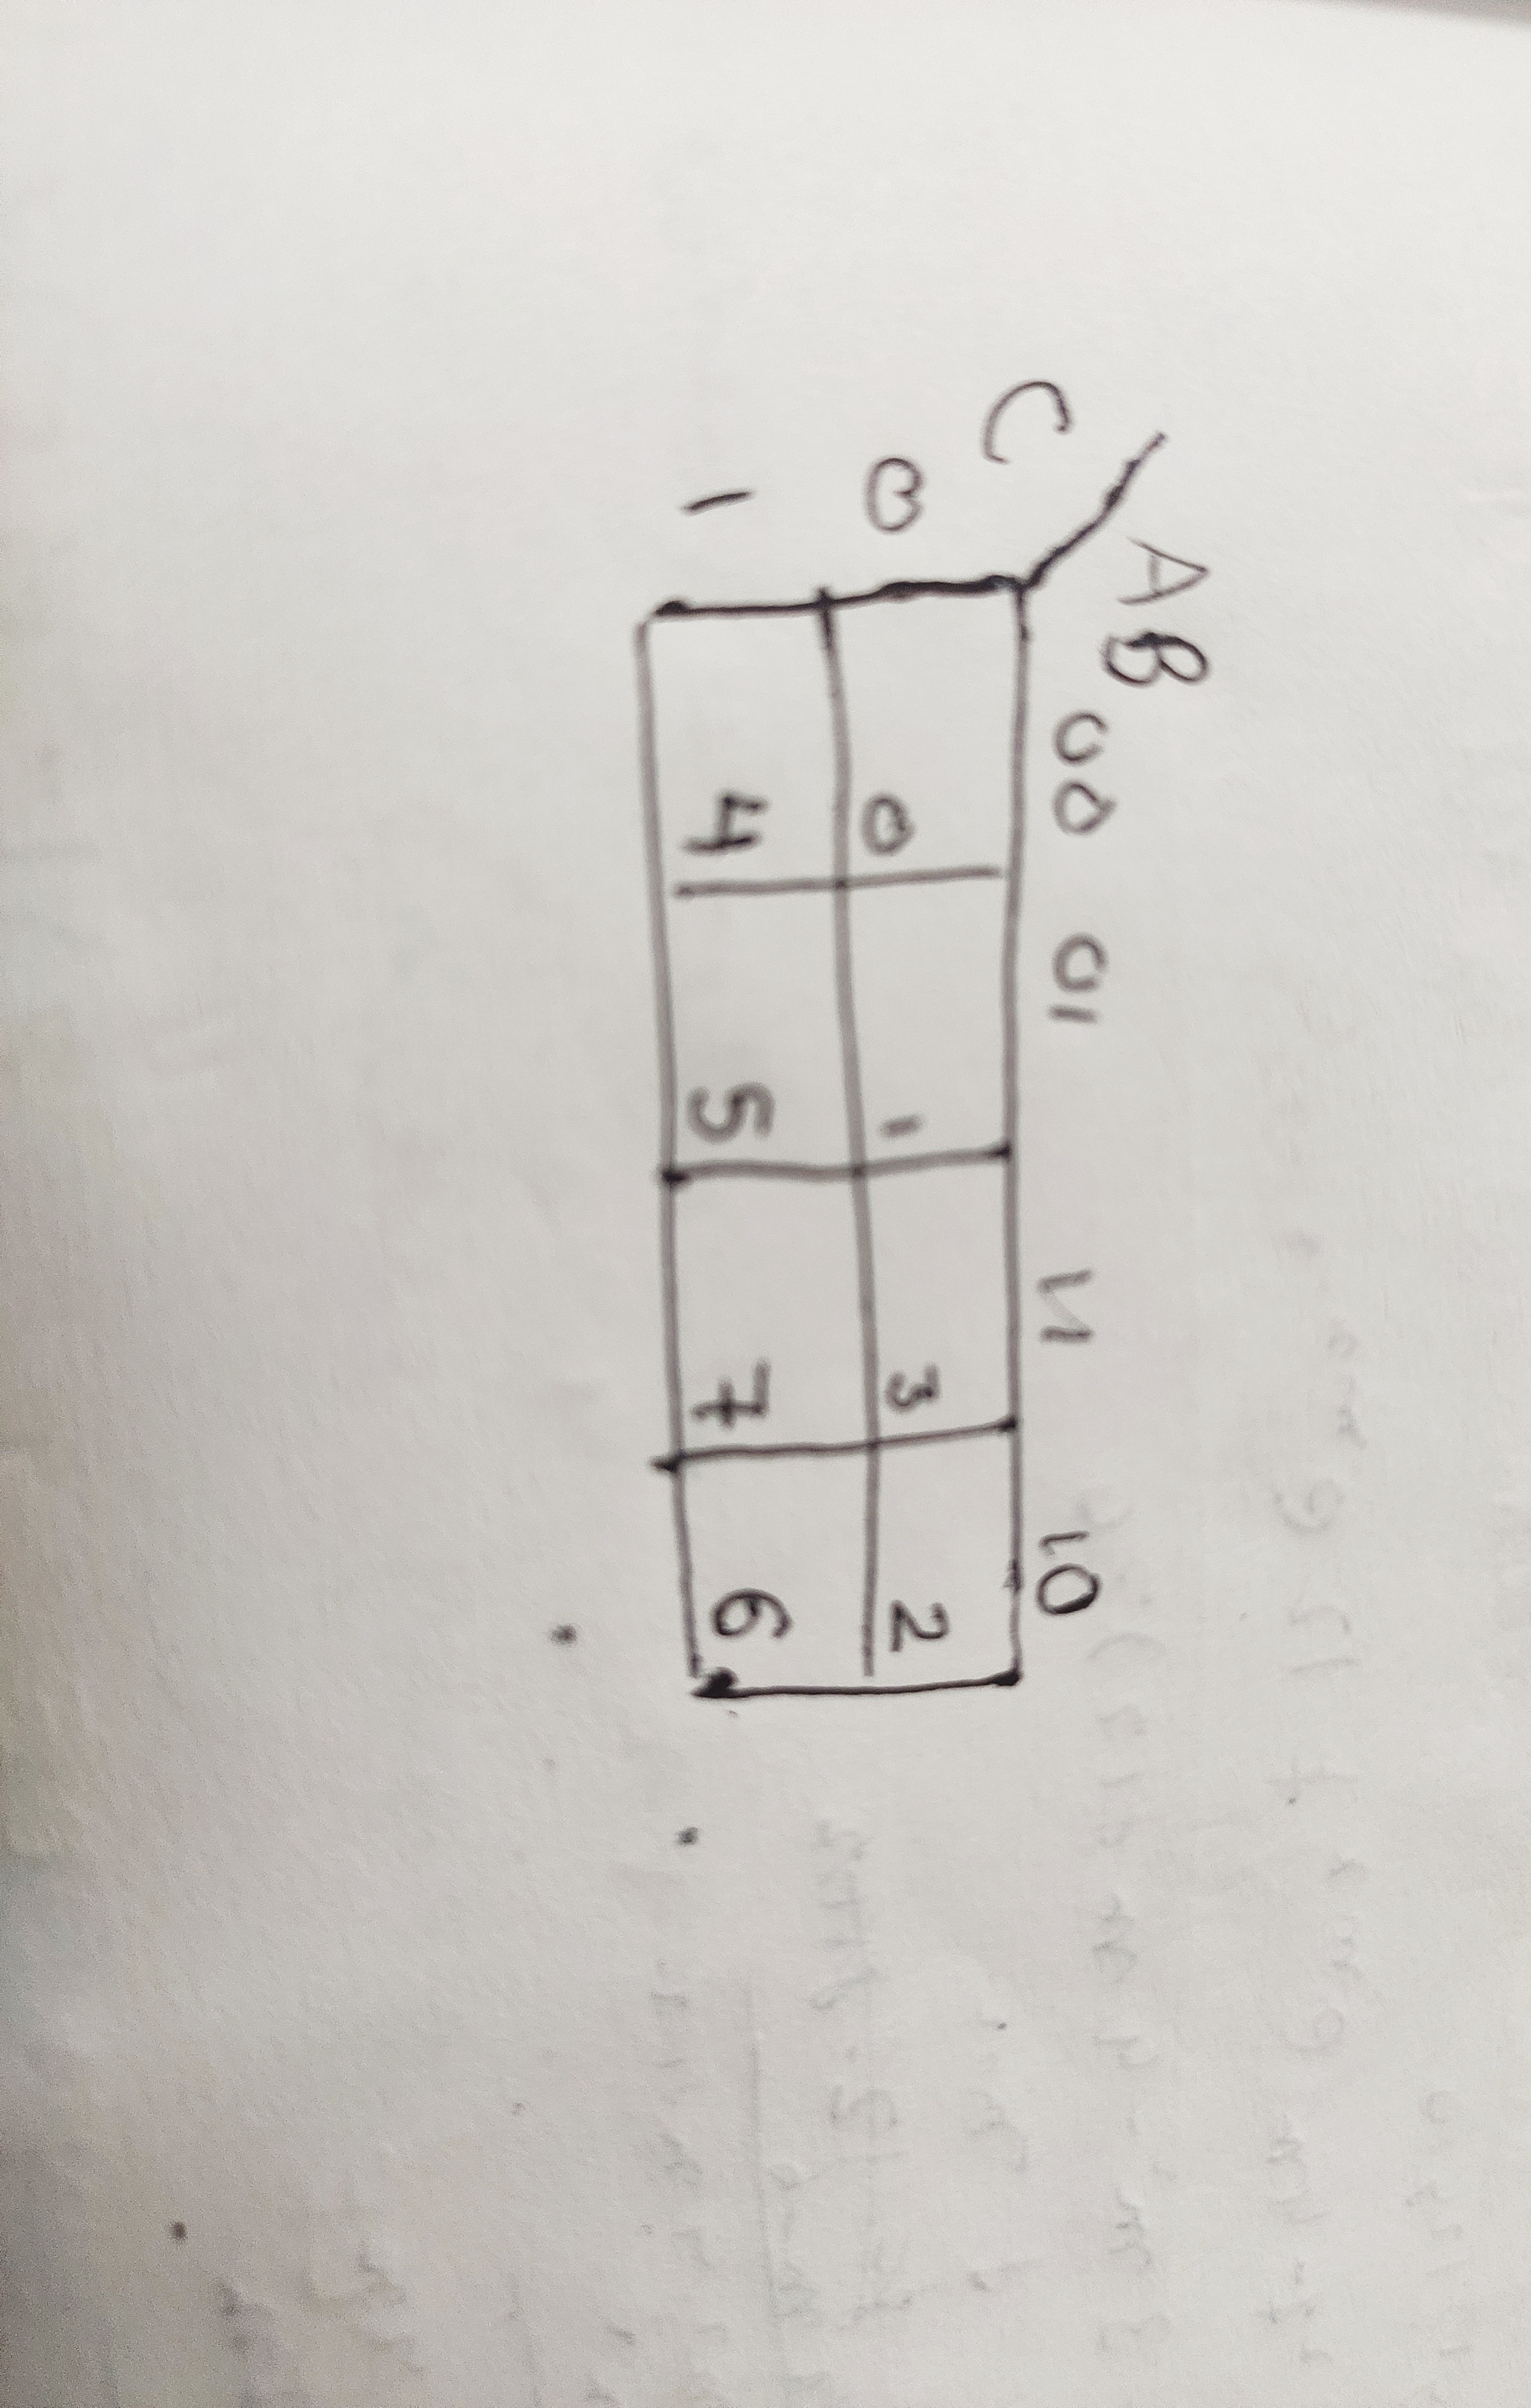 AB
C 00 01 11 10
0 0 1 3 2
1 4 5 7 6